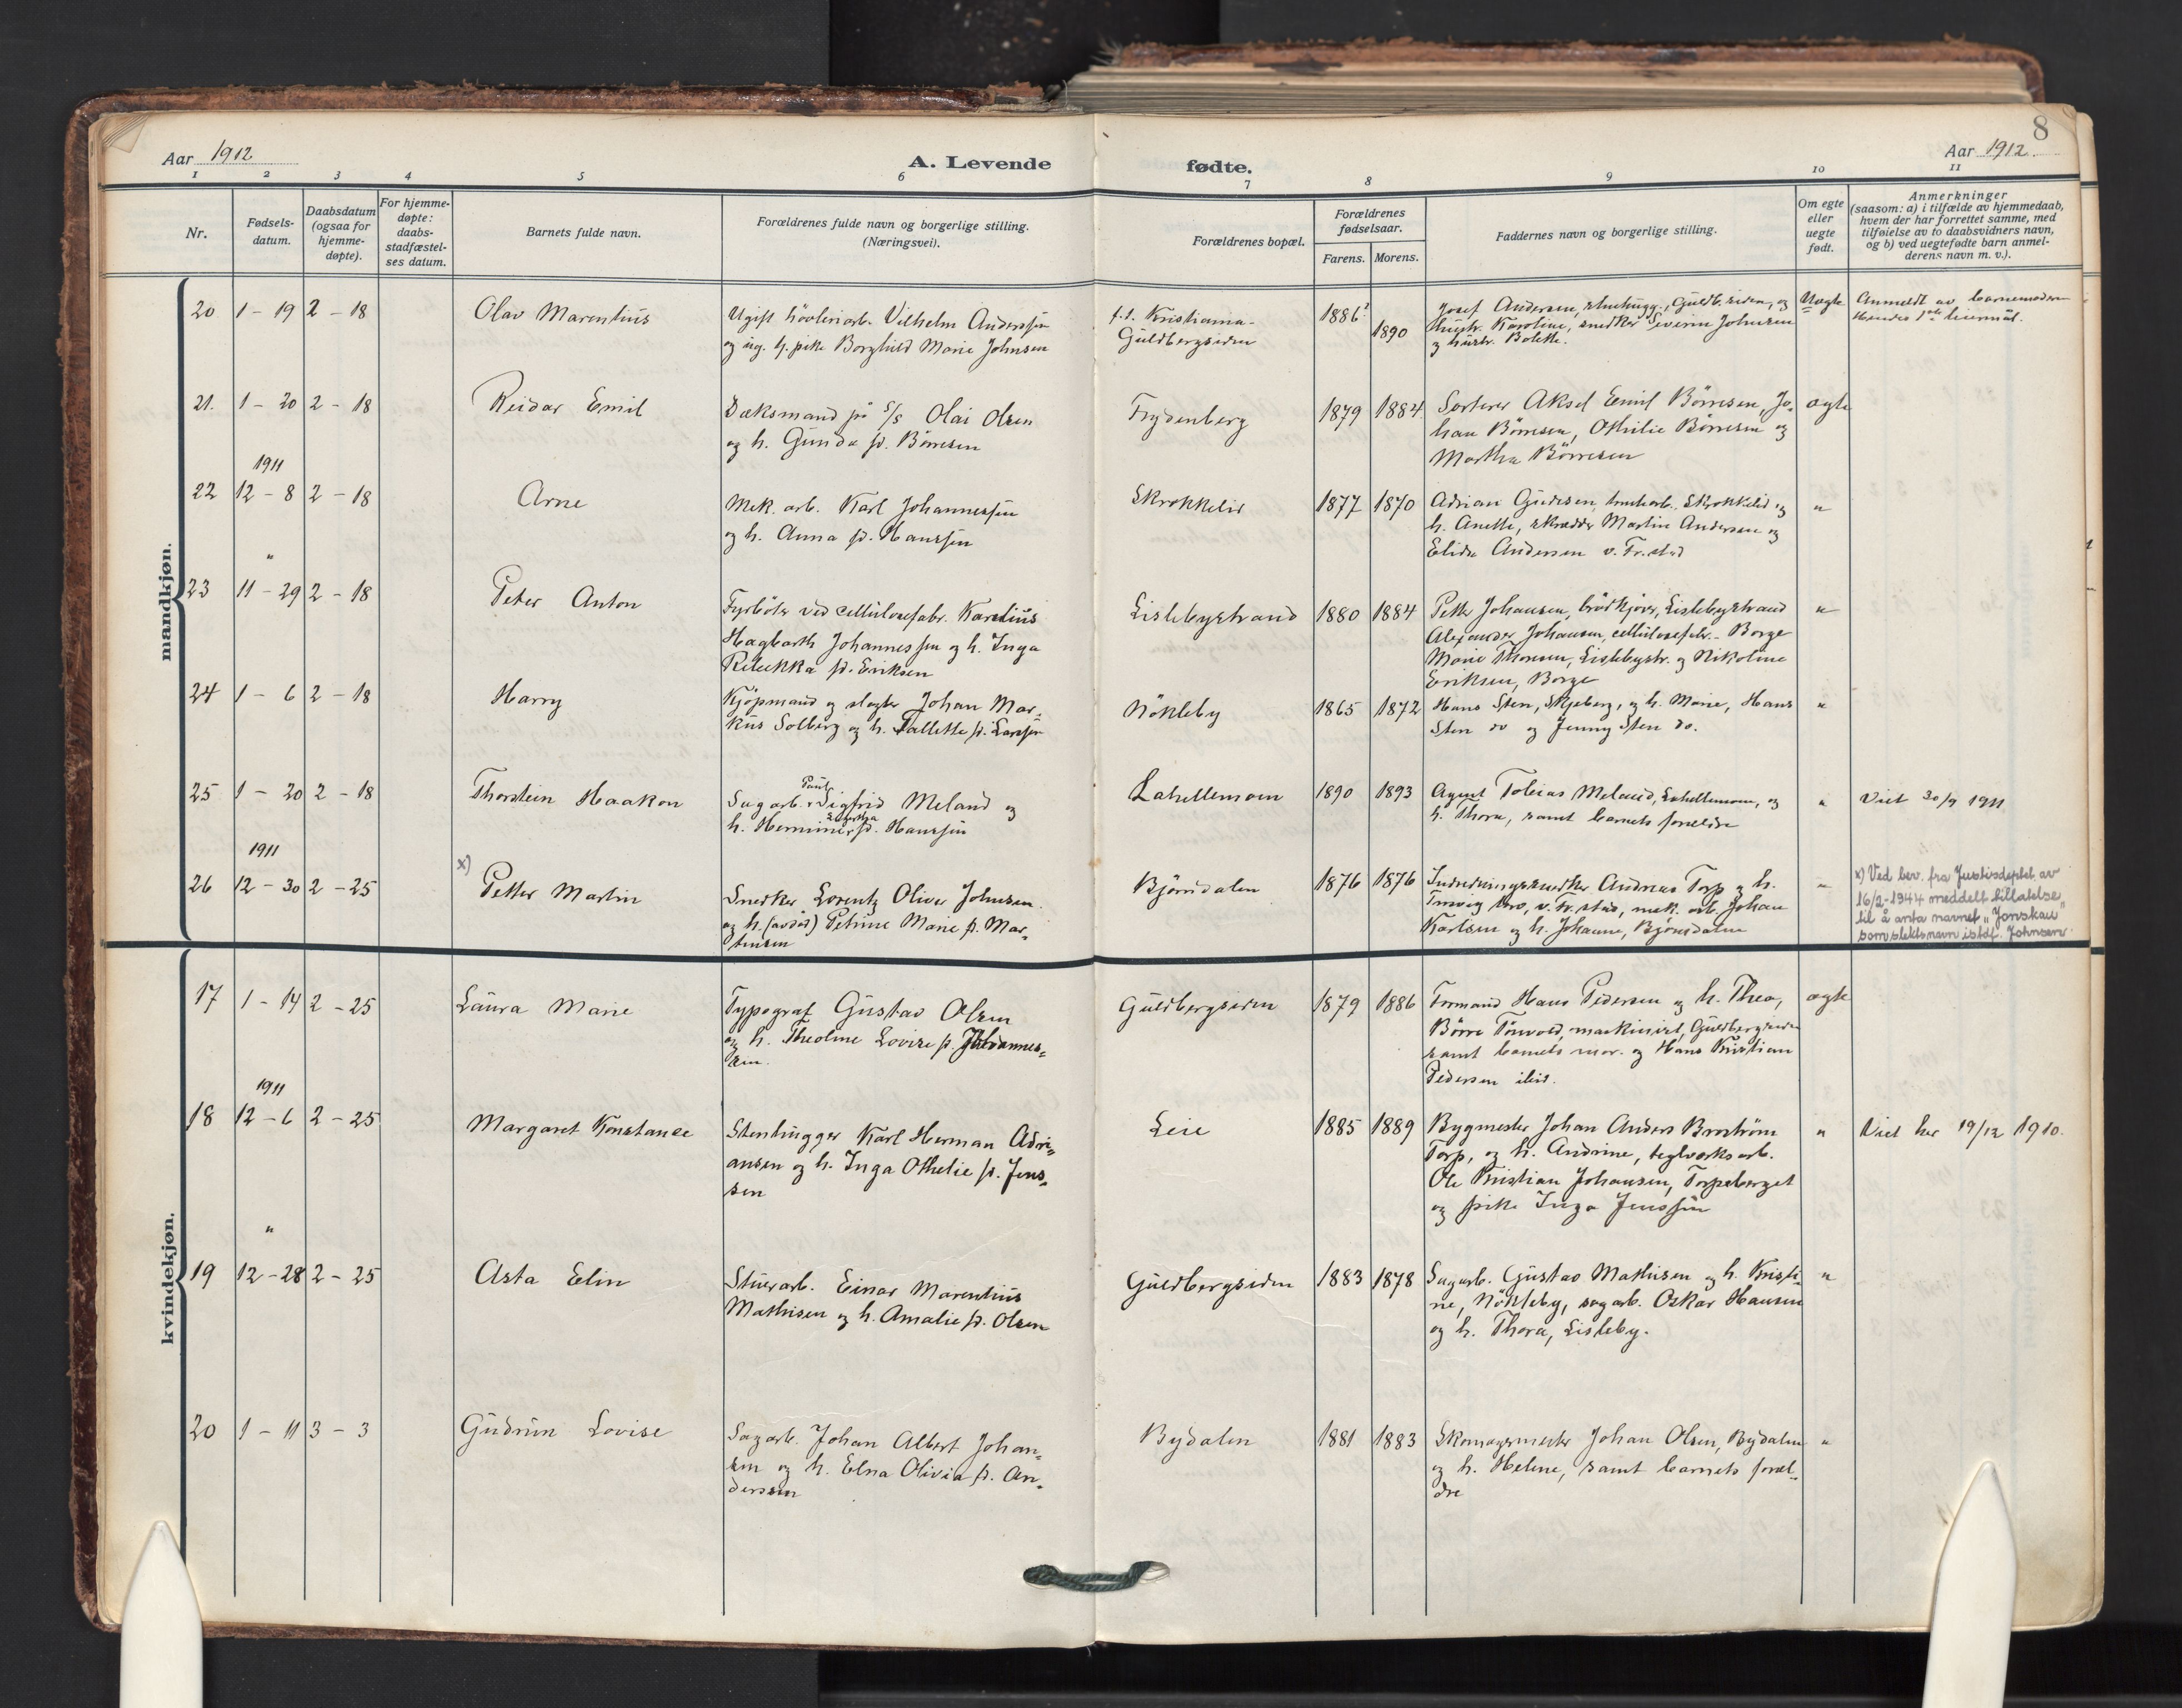 8
Aar 1912
A. Levende
fødte.
Aar 1912.
1 2 3 4 5 6 7 8 9 10 11
Nr.
Fødsels-
datum.
Daabsdatum
(ogsaa for
hjemme-
døpte).
For hjemme-
døpte:
daabs-
stadfæstel-
ses datum.
Barnets fulde navn.
Forældrenes fulde navn og borgerlige stilling.
(Næringsvei).
Forældrenes bopæl.
Forældrenes
fødselsaar.
Farens. Morens.
Faddernes navn og borgerlige stilling.
Om egte
eller
uegte
født.
Anmerkninger
(saasom: a) i tilfælde av hjemmedaab,
hvem der har forrettet samme, med
tilføielse av to daabsvidners navn,
og b) ved uegtefødte barn anmel-
derens navn m. v.).
mandkjøn.
20 1 - 19 2 - 18
Olav Marentius
Ugift høvleriarb. Vilhelm Anderssen
og ug. tj. pike Borghild Marie Johnsen
f.t. Kristiania-
Guldbergsiden
1886?
1890
Josef Andersen, stenhugg., Guldb.siden, og
hustr. Karoline, snedker Severin Johnsen
og hustr. Bolette.
Uegte
Anmeldt av barnemoderen
Hendes 1ste leiermål.
21. 1 - 20 2 - 18
Reidar Emil
Dæksmand på S/S Olai Olsen
og h. Gunda f. Børresen
Frydenberg
1879 1884
Sorterer Aksel Emil Børresen, Jo-
han Børresen, Othilie Børresen og
Martha Børresen
ægte
1911
22 12 - 8 2 - 18
Arne
Mek. arb. Karl Johannessen
og h. Anna f. Hanssen
Skrokkelid
1877 1870
Adrian Gudesen, bruksarb. Skrokkelid og
h. Anette, skrædder Martin Andersen og
Elida Andersen v. Fr.stad
"
"
23 11 - 29 2 - 18
Peter Anton
Fyrbøter ved cellulosefabr. Karelius
Hagbarth Johannessen og h. Inga
Rebekka f. Eriksen
Lislebystrand
1880 1884
Petter Johansen, brødkjører, Lislebystrand
Alexander Johansen, cellulosefabr. - Borge
Marie Thoresen, Lislebystr. og Nikoline
Eriksen, Borge
"
24 1 - 6 2 - 18
Harry
Kjøpmand og slagter Johan Mar-
kus Solberg og h. Tallette f. Larssen
Nökleby
1865 1872
Hans Sten, Skjeberg, og h. Marie, Hans
Sten do og Jenny Sten do.
"
25 1 - 20 2 - 18
Thorstein Haakon
Paul
Sagarb. Sigfrid Meland og
h. Hermine f. Hanssen
Lahellemoen
1890 1893
Agent Tobias Meland, Lahellemoen, og
h. Thora, samt barnets forældre
"
Viet 30/9 1911
1911
26 12 - 30 2 - 25
x)
Petter Martin
Snedker Lorentz Oliver Johnsen
og h. (avdød) Petrine Marie f. Mar-
thinsen
Bjørndalen
1876 1876
Indredningssnedker Andreas Torp og h.
v. Fr.stad, mek. arb. Johan
Karlsen og h. Johanne, Bjørndalen
"
x) Ved bev. fra Justisdeptet av
16/2-1944 meddelt tillatelse
til å anta navnet „Jonskau"
som slektsnavn istdf. Johnsen.
kvindekjøn.
17 1 - 14 2 - 25
Laura Marie
Typograf Gustav Olsen
og h. Theoline Lovise f. Johannes-
sen.
Guldbergsiden
1879 1886
Formand Hans Pedersen og h. Thea,
Børre Tønvold, maskinist, Guldbergsiden
samt barnets mor. og Hans Kristian
Pedersen ibid.
ægte
1911
18 12 - 6 2 - 25
Margaret Konstance
Stenhugger Karl Herman Adri-
ansen og h. Inga Othelie f. Jens-
sen
Leie
1885 1889
Bygmester Johan Anders Broström
Torp, og h. Andrine, teglverksarb.
Ole Kristian Johansen, Torpeberget
og pike Inga Jenssen
"
Viet her 19/12 1910.
"
19 12 - 28 2 - 25
Asta Elin
Stuerarb. Einar Marentius
Mathisen og h. Amalie f. Olsen
Guldbergsiden
1883 1878
Sagarb. Gustav Mathisen og h. Kristi-
ne, Nökleby, sagarb. Oskar Hansen
og h. Thora, Lisleby.
"
20 1 - 11 3 - 3
Gudrun Lovise
Sagarb. Johan Albert Johan-
sen og h. Elna Olivia f. An-
derssen
Bydalen
1881 1883
Skomagermester Johan Olsen, Bydalen
og h. Helene, samt barnets foræl-
dre
"